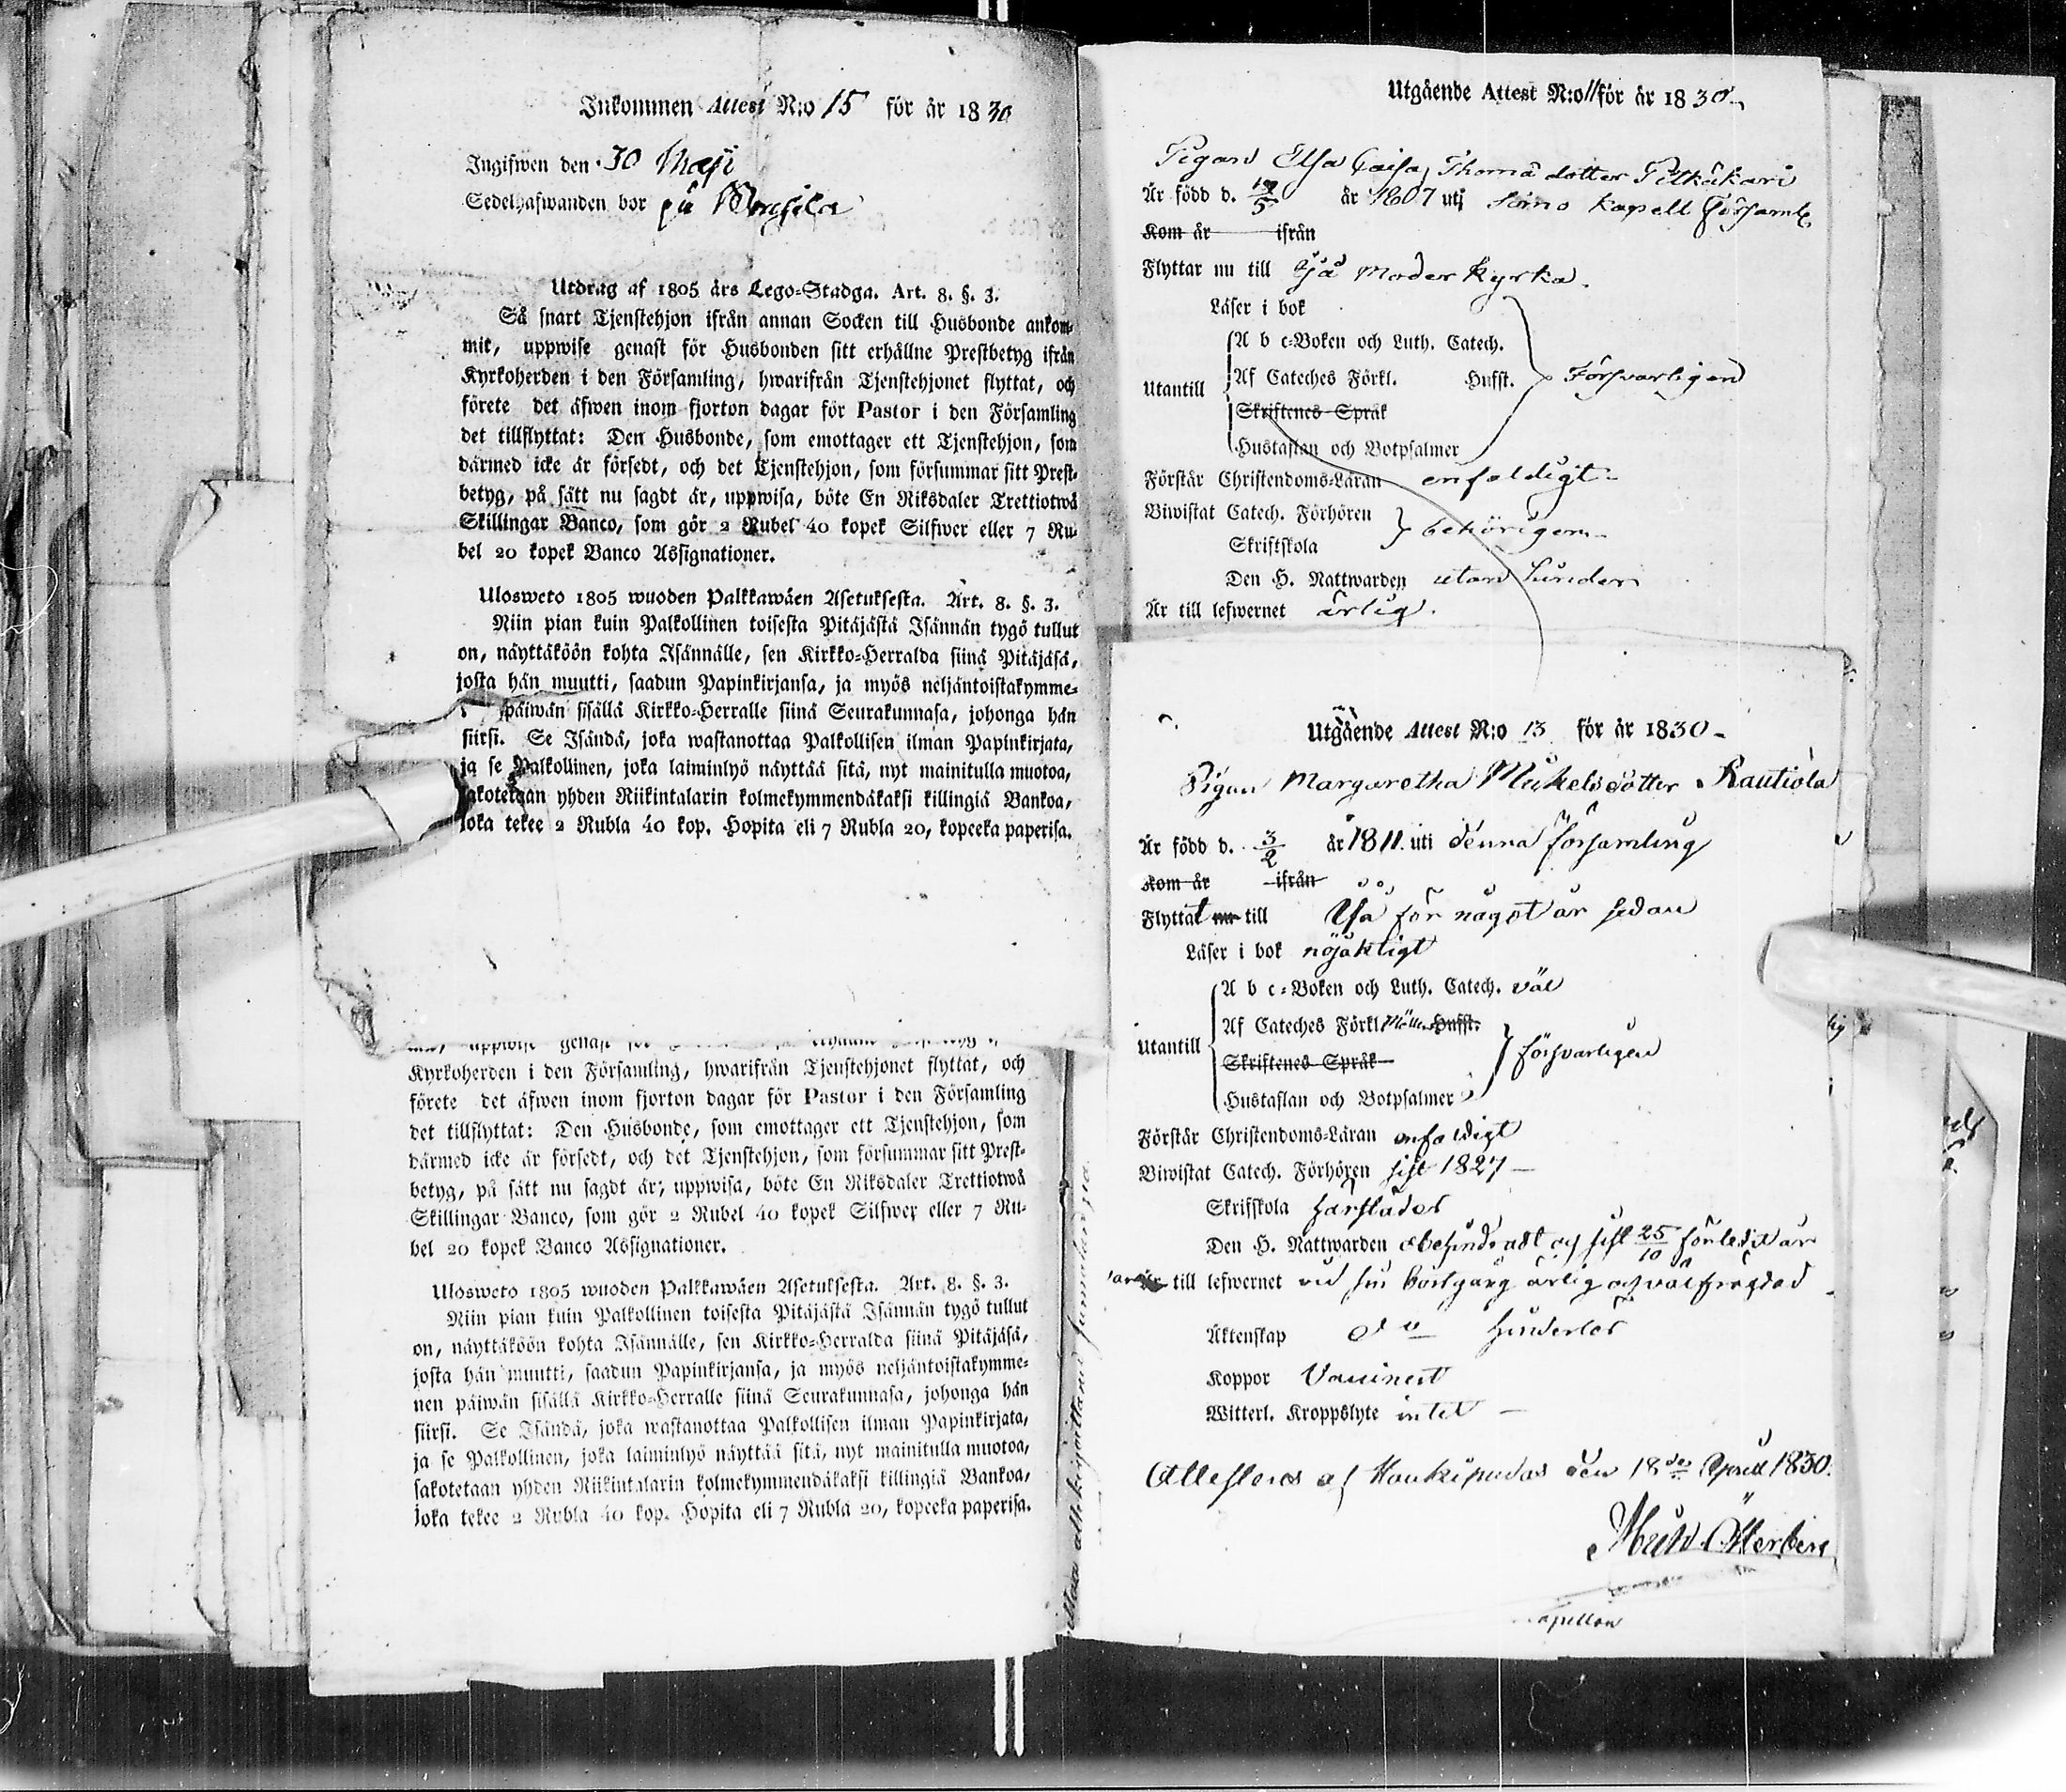 Inkommen Attest N:o 15 för år 1830
Ingifwen den 30 Maji
Sedelhafwanden bor på
Utdrag af 1805 års Lego-Stadga. Art. 8. §. 3.
Så snart Tjenstehjon ifrån annan Socken till Husbonde ankom-
mit, uppwise genast för Husbonden sitt erhållne Prestbetyg ifrån
Kyrkoherden i den Församling, hwarifrån Tjenstehjonet flyttat, och
förete det äfwen inom fjorton dagar för Pastor i den Församling
det tillflyttat: Den Husbonde, som emottager ett Tjenstehjon, som
därmed icke är försedt, och det Tjenstehjon, som försummar sitt Prest-
betyg, på sätt nu sagdt är, uppwisa, böte En Riksdaler Trettiotwå
Skillingar Banco, som gör 2 Rubel 40 kopek Silfwer eller 7 Ru-
bel 20 kopek Banco Assignationer.
Ulosweto 1805 wuoden Palkkawäen Asetuksesta. Art. 8. §. 3.
Niin pian kuin Palkollinen toisesta Pitäjästä Isännän tygö tullut
on, näyttäköön kohta Isännälle, sen Kirkko-Herralda siinä Pitäjäsä,
josta hän muutti, saadun Papinkirjansa, ja myös neljäntoistakymme-
päiwän sisällä Kirkko-Herralle siinä Seurakunnasa, johonga hän
siirsi. Se Isändä, joka wastanottaa Palkollisen ilman Papinkirjata,
ja se Palkollinen, joka laiminlyö näyttää sitä, nyt mainitulla muotoa,
sakotetaan yhden Riikintalarin kolmekymmendäkaksi killingiä Bankoa,
joka tekee 2 Rubla 40 kop. Hopita eli 7 Rubla 20, kopeeka paperisa.
uppwise genast
Kyrkoherden i den Församling, hwarifrån Tjenstehjonet flyttat, och
förete det äfwen inom fjorton dagar för Pastor i den Församling
det tillflyttat: Den Husbonde, som emottager ett Tjenstehjon, som
därmed icke är försedt, och det Tjenstehjon, som försummar sitt Prest-
betyg, på sätt nu sagdt är, uppwisa, böte En Riksdaler Trettiotwå
Skillingar Banco, som gör 2 Rubel 40 kopek Silfwer eller 7 Ru-
bel 20 kopek Banco Assignationer.
Ulosweto 1805 wuoden Palkkawäen Asetuksesta. Art. 8. §. 3.
Niin pian kuin Palkollinen toisesta Pitäjästä Isännän tygö tullut
on, näyttäköön kohta Isännälle, sen Kirkko-Herralda siinä Pitäjäsä,
josta hän muutti, saadun Papinkirjansa, ja myös neljäntoistakymme-
nen päiwän sisällä Kirkko-Herralle siinä Seurakunnasa, johonga hän
siirsi. Se Isändä, joka wastanottaa Palkollisen ilman Papinkirjata,
ja se Palkollinen, joka laiminlyö näyttää sitä, nyt mainitulla muotoa,
sakotetaan yhden Riikintalarin kolmekymmendäkaksi killingiä Bankoa,
joka tekee 2 Rubla 40 kop. Hopita eli 7 Rubla 20, kopeeka paperisa.
Utgående Attest N:o 11 för år 1830
Pigan Elsa Caisa Thomä dotter Pitkäkari
Är född d. 19/5 år 1807 uti Simo Kapell Församl.
Kom år ifrån
Flyttar nu till Ijå Moderkyrka.
Läser i bok
A b c-Boken och Luth. Catech.
Utantill Af Cateches Förkl. Hufst. Försvarligen
Skriftenes Språk
Hustaflan och Botpsalmer
Förstår Christendoms-Läran enfaldigt
Biwistat Catech. Förhören behörigen
Skriftskola
Den H. Nattwarden utan hinder
Är till lefwernet ärlig.
Utgående Attest N:o 13 för år 1830
Pigan Margaretha Mickelsdotter Rautiola
Är född d. 3/2 år 1811. uti denna församling
Kom år ifrån
Flyttat nu till Ijå för något år sedan
Läser i bok nöjaktigt
A b c-Boken och Luth. Catech. väl
Utantill Af Cateches Förkl Möllers Hufst.
Skriftenes Språk försvarligen
Hustaflan och Botpsalmer
Förstår Christendoms-Läran enfaldigt
Biwistat Catech. Förhören sist 1827
Skrifskola
Den H. Nattwarden obehindradt och sist 25/10 förledit år
till lefwernet vid sin bortgång ärlig och välfrägdad
Äktenskap do hinderlös
Koppor Vaccinerd
Witterl. Kroppslyte intet
Attesteras af Haukipudas den 18de April 1830.
Österberg
Capellan